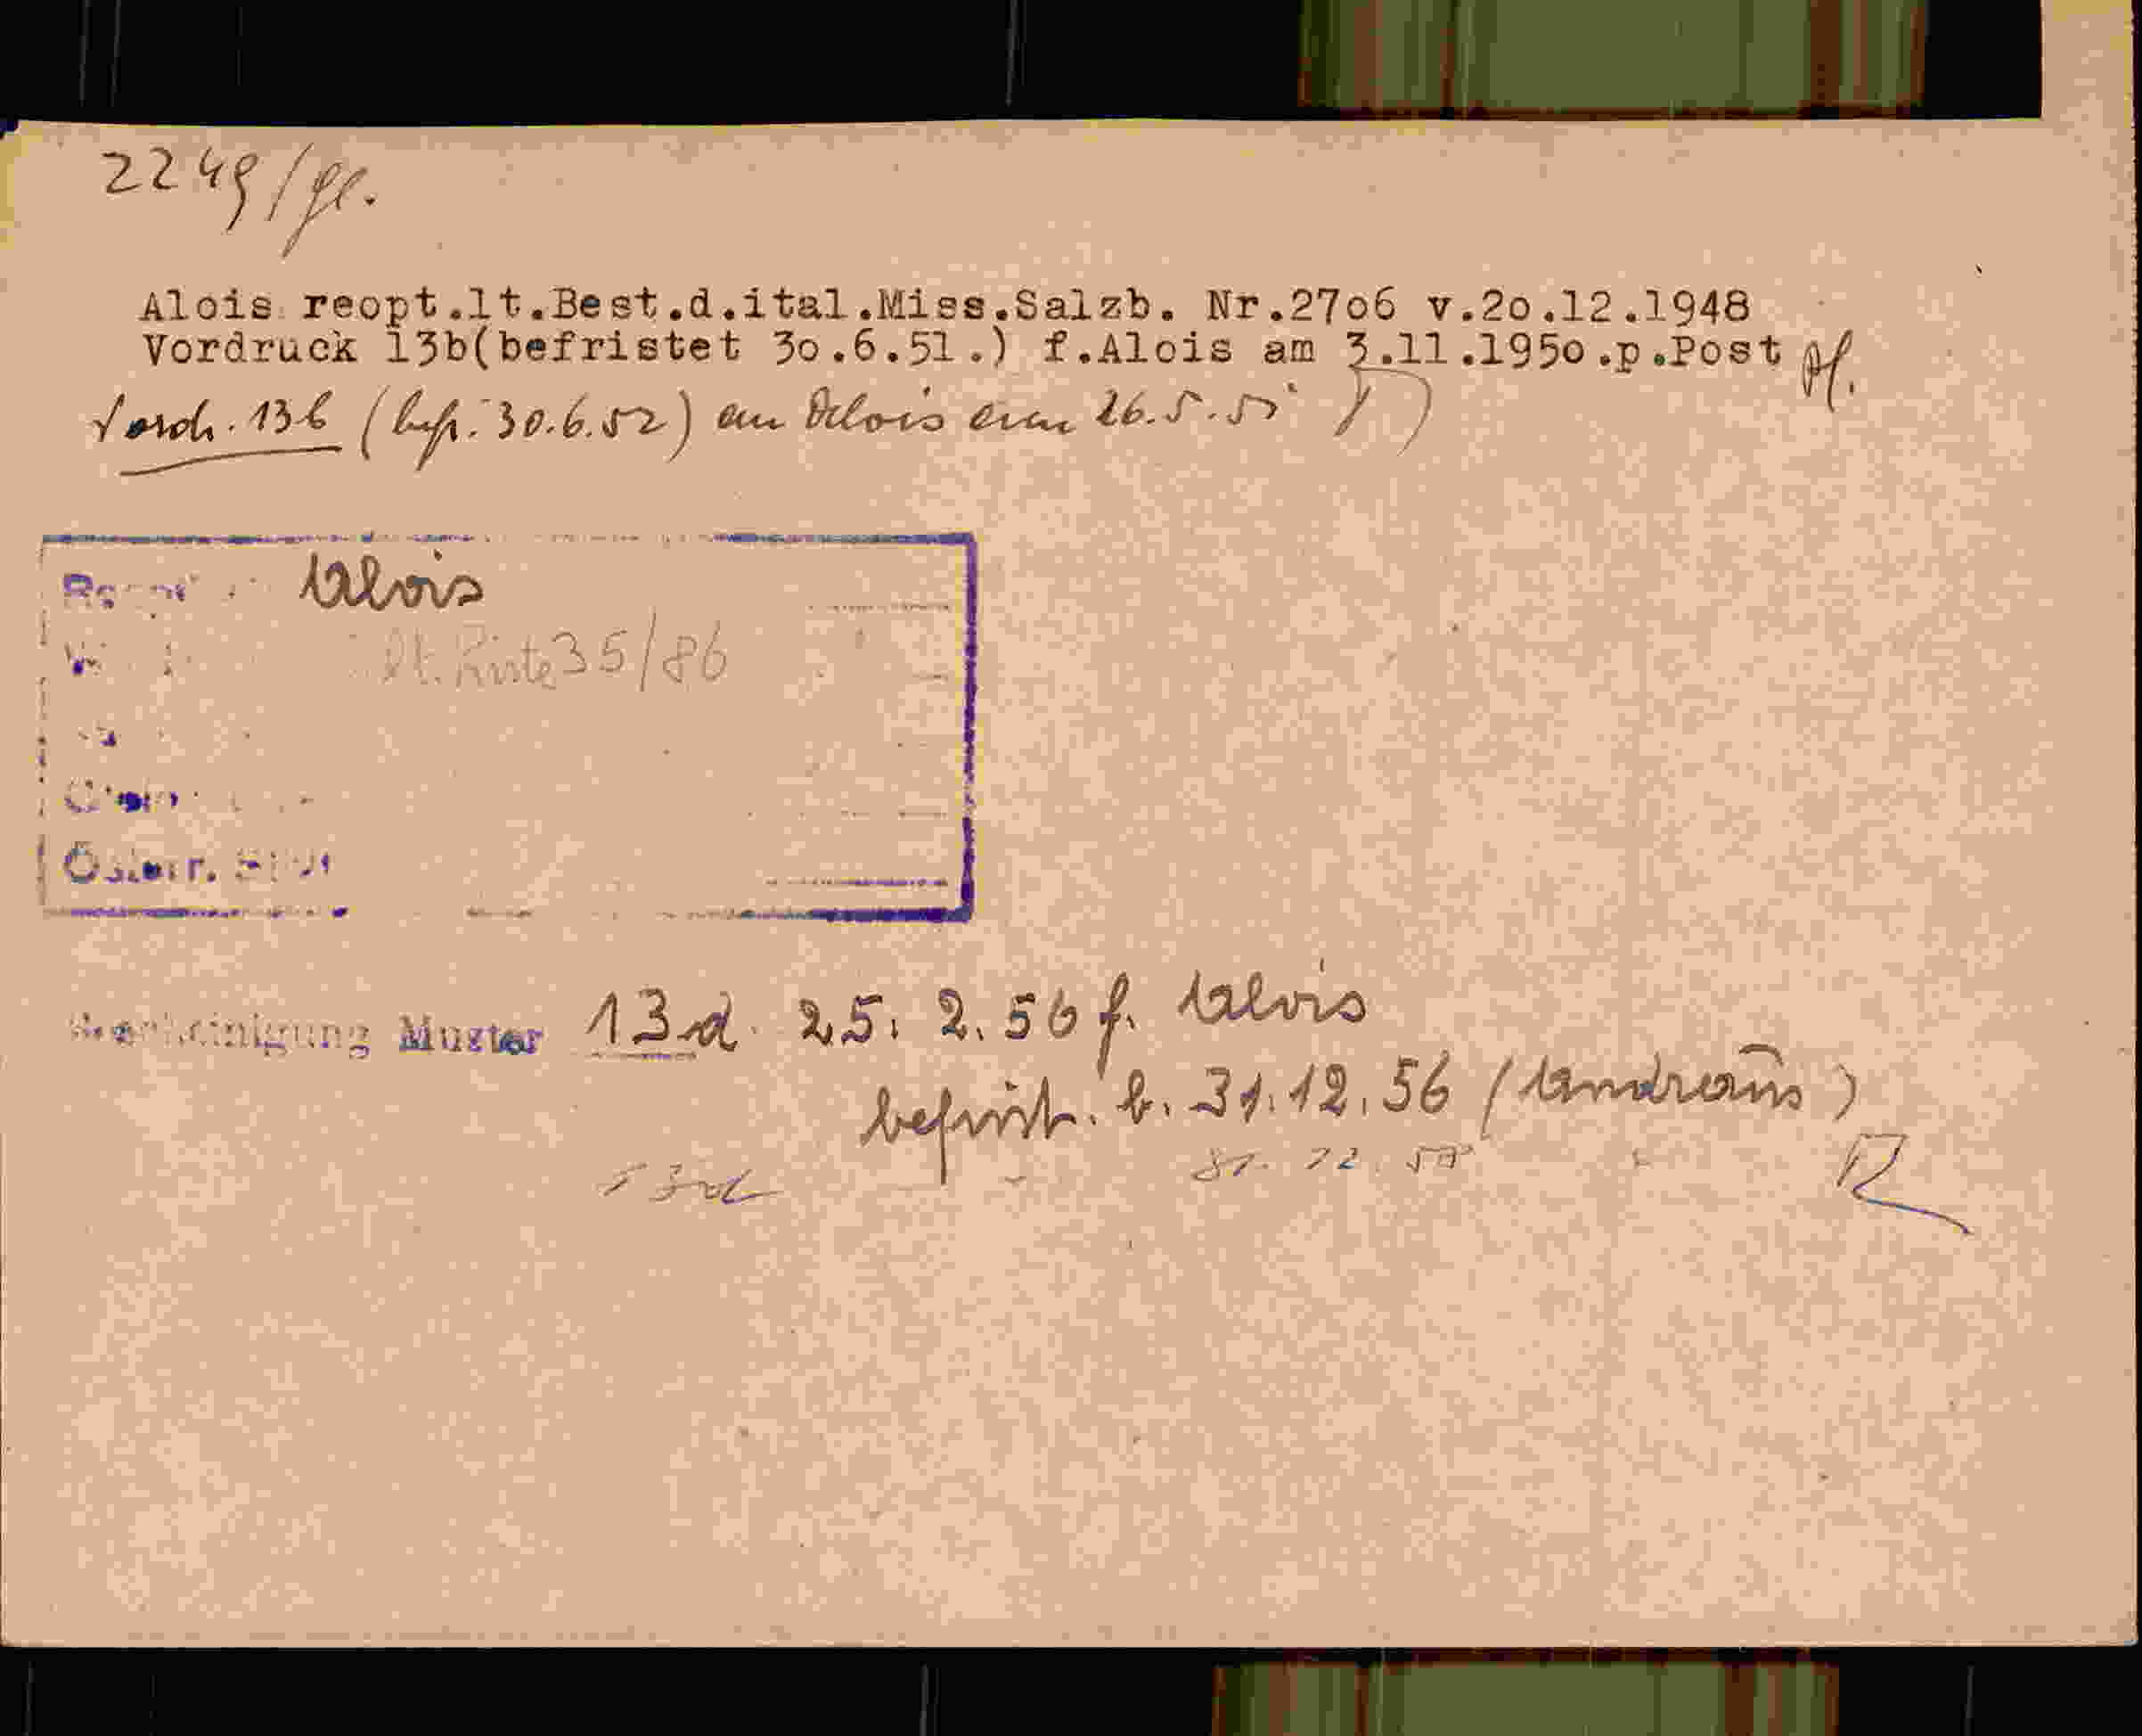 2249/
Alois reopt.lt.Best.d.ital.Miss.Salzb. Nr.27o6 v.2o.12.1948
Vordruck 13b(befristet 3o.6.51.) f.Alois am 3.11.195o.p.Post
13b ( 30.6.52) an Alois am 26.5.51
Alois
lt. Liste 35/86
Österr.
Bescheinigung Muster 13d 25. 2. 56 f. Alois
befrist. b. 31.12.56 (Andreaus)
13d 31. 12. 57